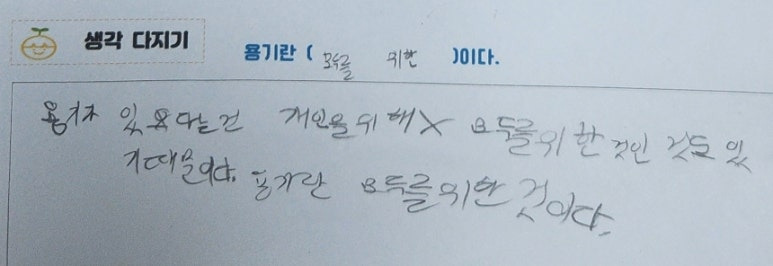 생각 다지기
용기란 ( 모두를 위한 )이다.
용기가 있다는건 개인을 위해X 모두를 위한 것인 것도 있
기때문이다. 용기란 모두를위한 것이다.